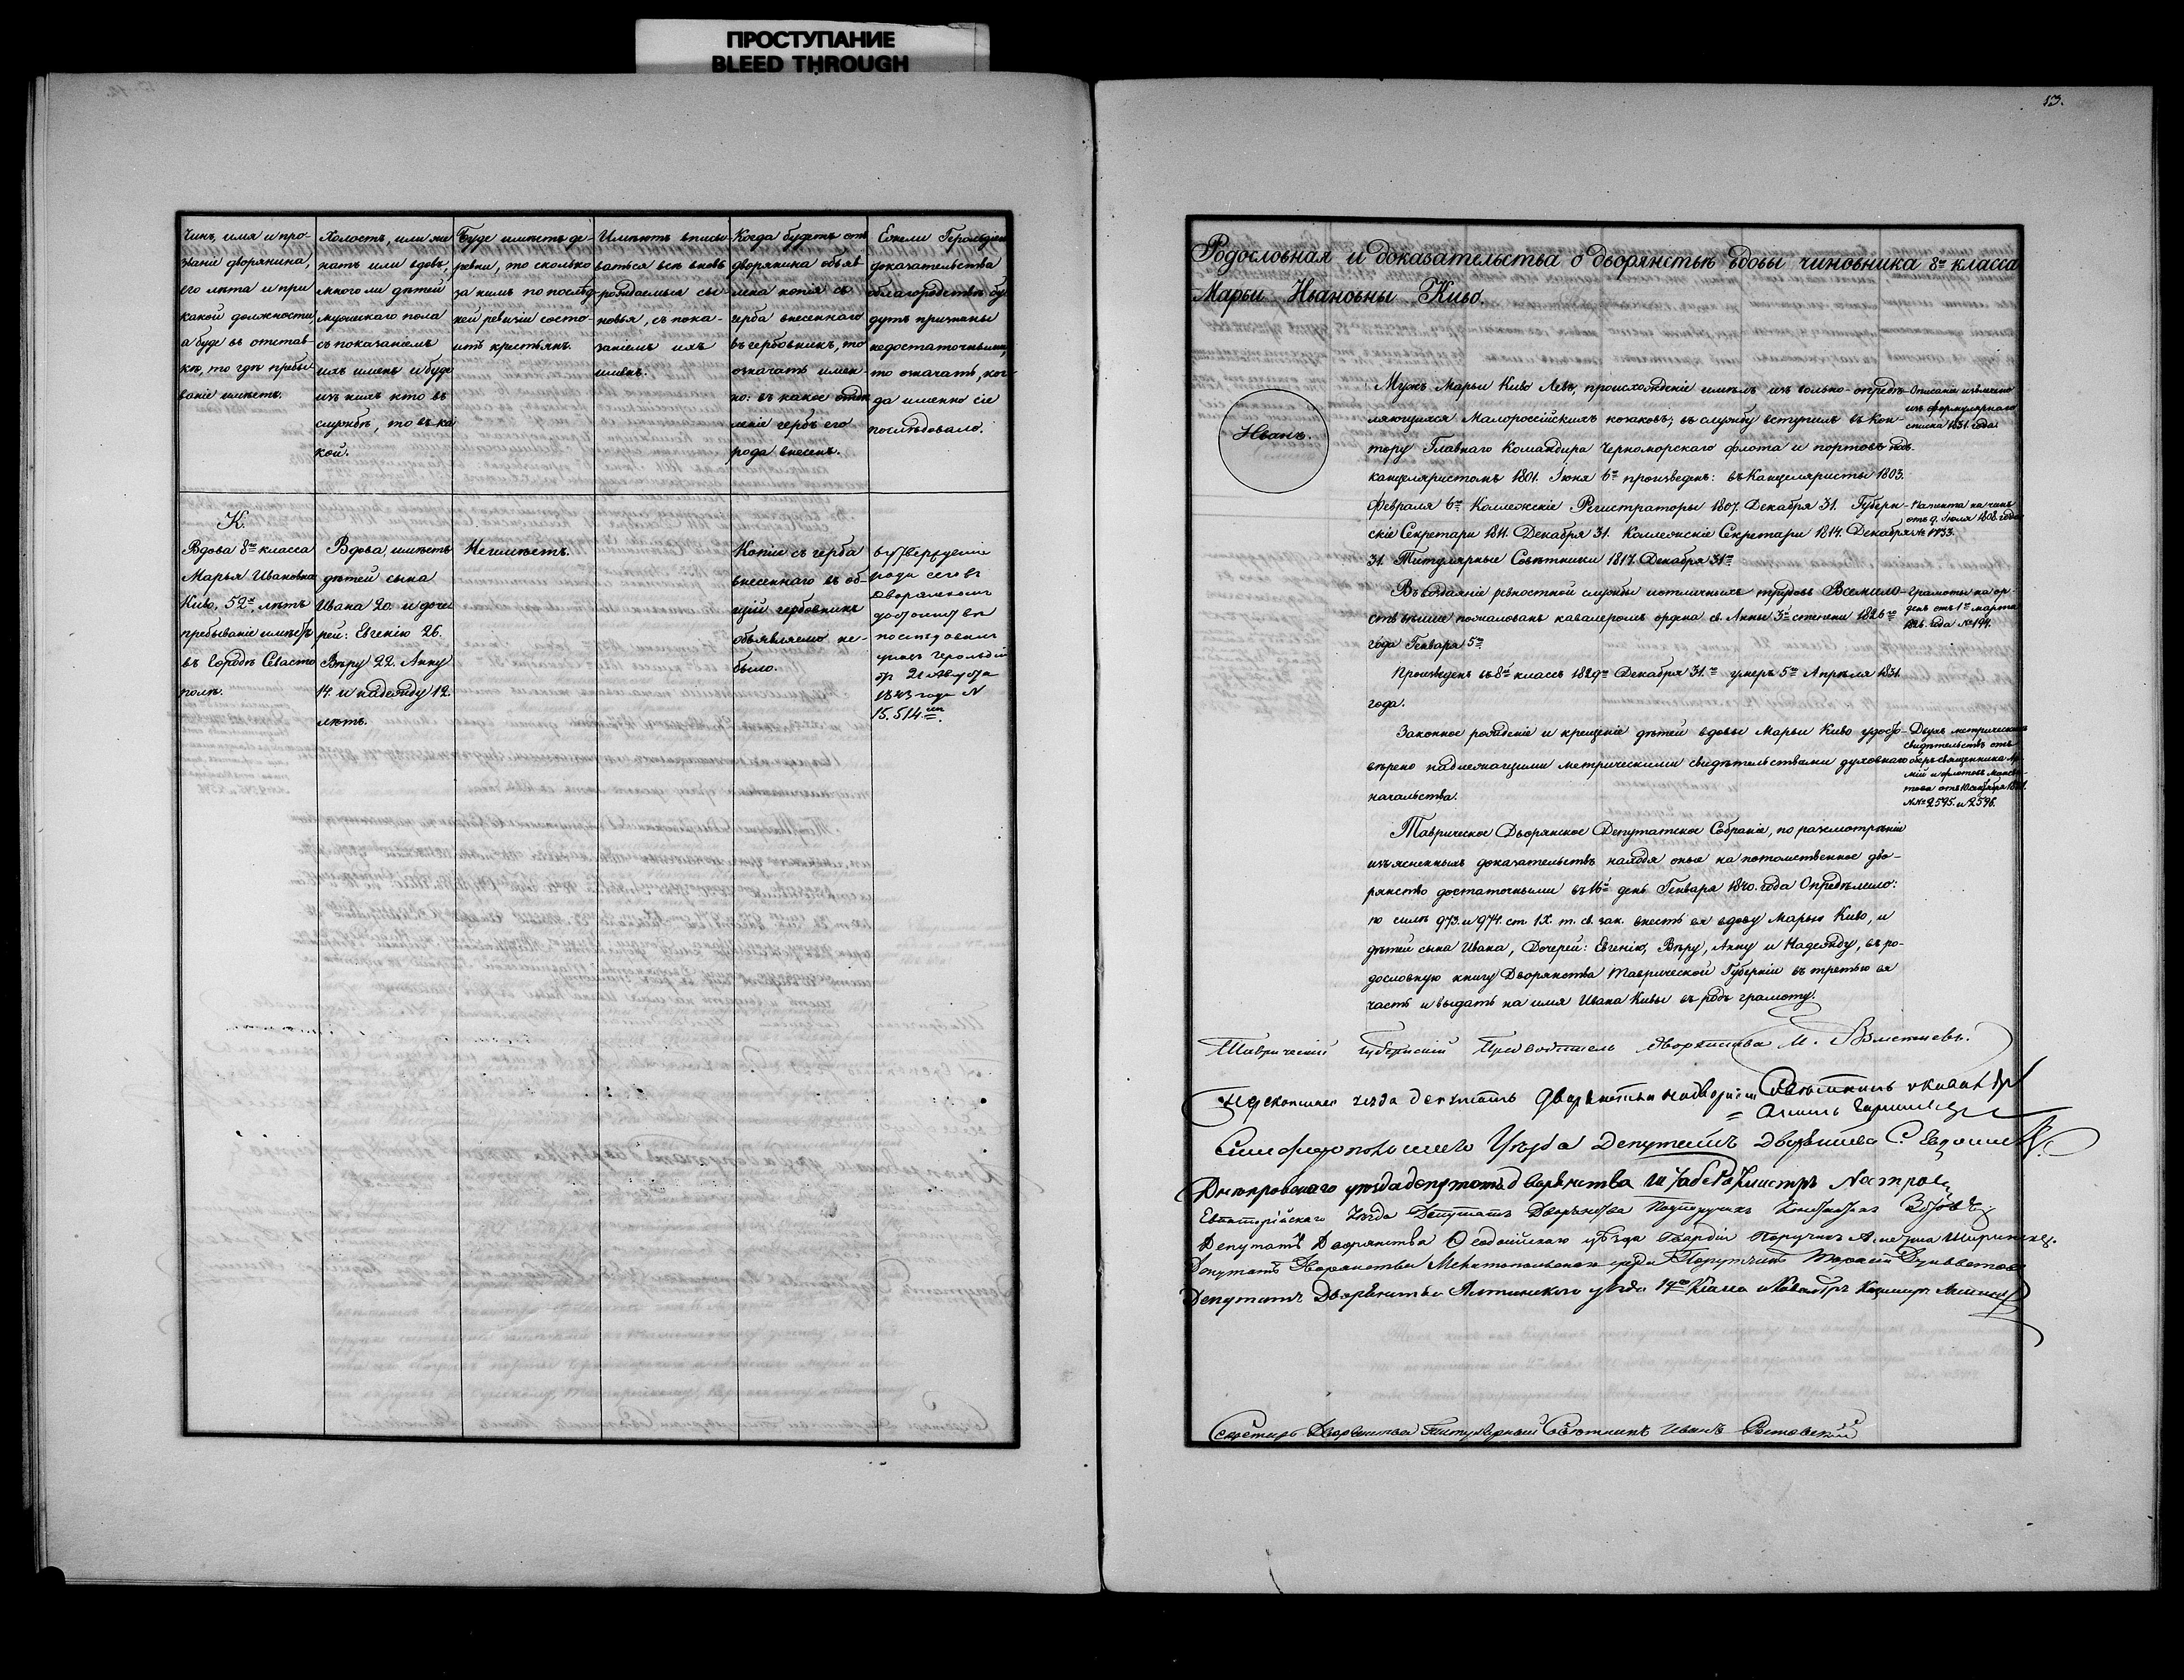 ПРОСТУПАНИЕ
BLEED THROUGH
Чинъ, имя и про-
званіе дворянина,
его лѣта и при
какой должности,
а буде въ отстав-
кѣ, то гдѣ пребы
ваніе имѣетъ.
Холостъ, или же
натъ или вдовъ,
много ли дѣтей
мужескаго пола
съ показаніемъ
ихъ именъ и буде
изъ нихъ кто въ
службѣ, то въ ка
кой.
Буде имѣетъ де-
ревни, то сколько
за нимъ по послѣд
ней ревизіи состо-
итъ крестьянъ.
Имѣютъ вписы
ваться всѣ вновь
рождаемые сы-
новья, съ пока-
заніемъ ихъ
именъ.
Когда будетъ отъ
дворянина объяв
лена копія съ
герба внесеннаго
въ гербовникъ, то
означать имен-
но: въ какое отдѣ
леніе гербъ его
рода внесенъ.
Ежели Герольдіею
доказательства
облагородствѣ бу
дутъ признаны
недостаточными,
то означать, ког-
да именно сіе
послѣдовало.
К.
Вдова 8го класса
Марья Ивановна
Киво, 52хъ лѣтъ
пребываніе имѣетъ
въ Городѣ Севасто
полѣ.
Вдова, имѣетъ
дѣтей сына
Ивана 20. и доче
рей: Евгенію 26.
Вѣру 22. Анну
14. и надежду 12.
лѣтъ.
Неимѣетъ.
Копіи съ герба
внесеннаго въ об-
щій гербовникъ
объявляемо не-
было.
Обутвержденіи
рода сего въ
Дворянскомъ
достоинствѣ
послѣдовалъ
указъ Герольдіи
отъ 21 Августа
1843 года №
15.514.
13.
Родословная и доказательства о дворянствѣ вдовы чиновника 8го класса
Марьи Ивановны Киво.
Иванъ.
Мужъ Марьи Киво Левъ, происхожденіе имѣлъ изъ вольно-опредѣ-
ляющихся Малороссійскихъ козаковъ; въ службу вступилъ въ Кон-
тору Главнаго Командира Черноморскаго флота и портовъ под-
канцеляристомъ 1801. Іюня 6го произведенъ: въ Канцеляристы 1803.
Февраля 6го Коллежскіе Регистраторы 1807. Декабря 31. Губерн-
скіе Секретари 1811. Декабря 31. Коллежскіе Секретари 1814. Декабря
31. Титулярные Совѣтники 1817. Декабря 31го
Въ воздаяніе ревностной службы и отличныхъ трудовъ Всемило-
стивѣйше пожалованъ кавалеромъ ордена св. Анны 3й степени 1826го
года Генваря 5го
Произведенъ въ 8й классъ 1829го Декабря 31.го умеръ 5го Апрѣля 1831.
года.
Законное рожденіе и крещеніе дѣтей вдовы Марьи Киво удосто-
вѣрено надлежащими метрическими свидѣтельствами духовнаго
начальства.
Описаніе извлечено
изъ формулярнаго
списка 1831. года.
Патента на чинъ
отъ 9. Іюля 1808. года
№ 1733.
Грамоты на ор-
денъ отъ 1го марта
1826. года № 194.
Двухъ метрическихъ
свидѣтельствъ отъ
оберъ-священника Ар
міи и флотовъ
№№ 2595. и 2596.
Таврическое Дворянское Депутатское Собраніе, по разсмотрѣніи
изъясненныхъ доказательствъ находя оныя на потомственное дво-
рянство достаточными въ 16й день Генваря 1840. года Опредѣлило:
по силѣ 973. и 974. ст. IX. т. св. зак. внесть ея вдову Марью Киво, и
дѣтей сына Ивана, Дочерей: Евгенію, Вѣру, Анну и Надежду, въ ро-
дословную книгу Дворянства Таврической Губерніи въ третью ея
часть и выдать на имя Ивана Кивы въ родъ грамоту.
Таврическій Губернскій Предводитель Дворянства
Перекопскаго уѣзда депутатъ Дворянства
Симферопольскаго Уѣзда Депутатъ Дворянства
Днѣпровскаго уѣзда депутатъ дворянства Штабсъ Ротмистръ
Евпаторійскаго Уѣзда Депутатъ Дворянства
Депутатъ Дворянства Ѳеодосійскаго уѣзда Гвардіи Поручикъ
Депутатъ Дворянства Мелитопольскаго уѣзда Порутчикъ
Депутатъ Дворянства Ялтинскаго уѣзда 14го Класса и Кавалеръ
Секретарь Дворянства Титулярный Совѣтникъ Иванъ